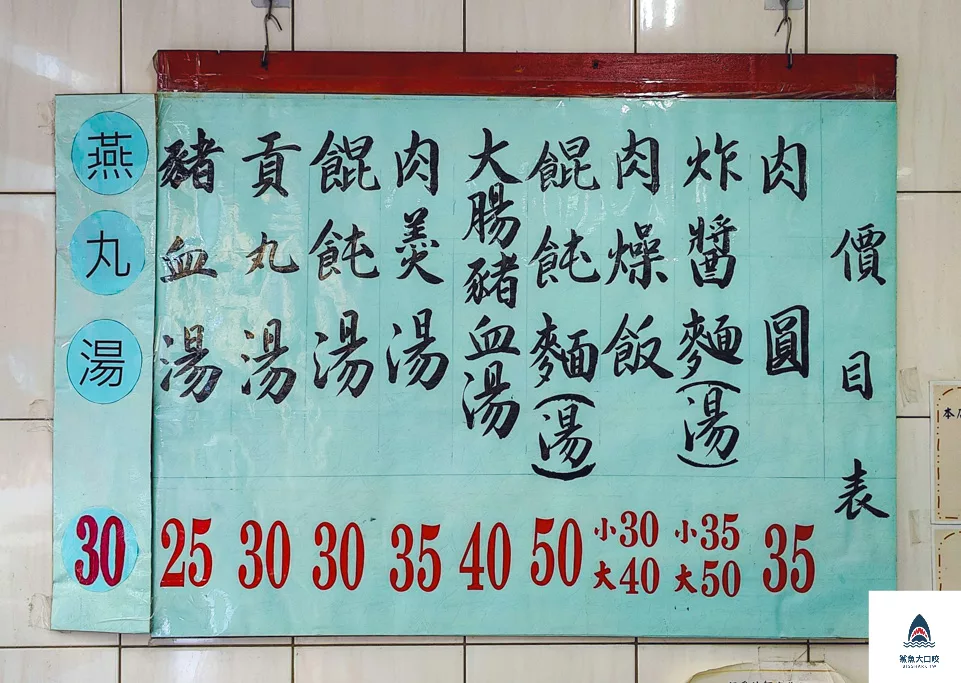 價目表
肉圓 35
炸醬麵(湯) 小35 大50
肉燥飯 小30 大40
餛飩麵(湯) 50
大腸豬血湯 40
肉羹湯 35
餛飩湯 30
貢丸湯 30
豬血湯 25
燕丸湯 30
鯊魚大口咬